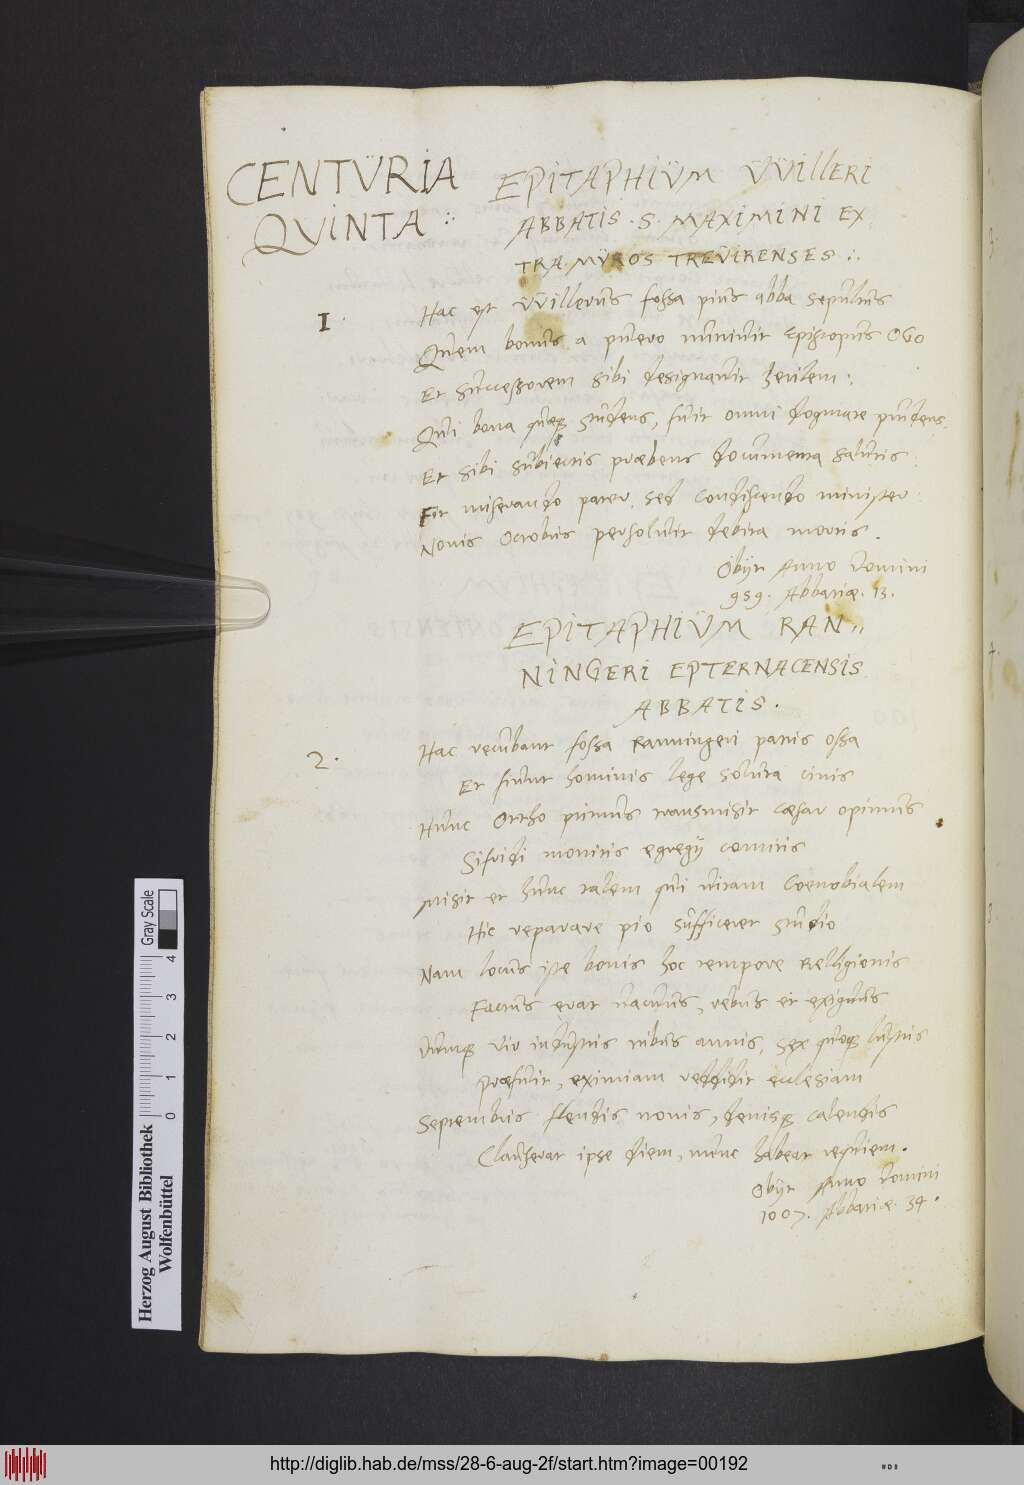 CENTVRIA
QVINTA
EPITAPHIVM VVILLERI
ABBATIS . S . MAXIMINI EX
TRA MVROS TREVIRENSES
I.
Hac est VVillerus fossa pius abba sepultus
Quem bonus a puero nutriuit Episcopus OGo
Et successorem sibi designauit herilem
Qui bona quæq studens, fuit omni dogmate prudens,
Et sibi subiectis præbens documenta salutis
Fit miserando pater, sed condiscendo minister
Nonis Octobris persoluit debita mortis.
Obijt Anno Domini
959. Abbatiæ. 13.
EPITAPHIVM RAN,,
NINGERI EPTERNACENSIS
ABBATIS.
2.
Hac recubant fossa Ranningeri patris ossa
Et fiunt hominis lege soluta cinis
Hunc Ottho primus transmisit cæsar opimus
Sifridi monitis egregij comitis
Misit et hunc talem qui uitam Coenobialem
Hic reparare pio sufficeret studio
Nam locus iste bonis hoc tempore Relligionis
Factus erat uacuus, rebus et exiguus
Dumq vir industris tribus annis, sex quoq lustris
Præfuit, eximiam reddidit ecclesiam
Septembris flendis nonis, denisq calendis
Clauserat ipse diem, nunc habeat requiem.
Obijt Anno Domini
1007. Abbatiæ 34.
Herzog August Bibliothek
Wolfenbüttel
0 1 2 3 4
Gray Scale
http://diglib.hab.de/mss/28-6-aug-2f/start.htm?image=00192